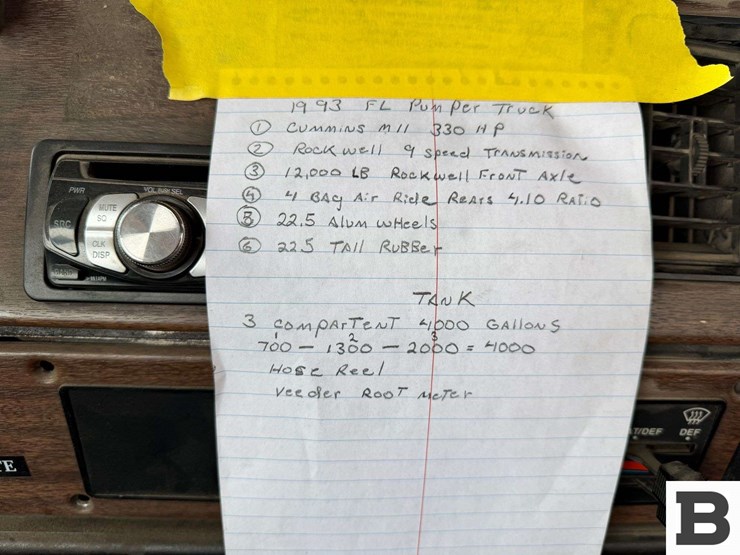 1993 FL Pumper Truck
① Cummins M11 330 HP
② Rockwell 9 speed Transmission
③ 12,000 LB Rockwell Front Axle
④ 4 BAg Air Ride Rears 4.10 Ratio
⑤ 22.5 Alum wheels
⑥ 22.5 TAll Rubber
TANK
3 compartent 4000 GAllons
1 2 3
700 - 1300 - 2000 = 4000
Hose Reel
Veeder Root meter
PWR
VOL/BAN/SEL
SRC
MUTE
SQ
CLK
DISP
TE
T/DEF
DEF
B